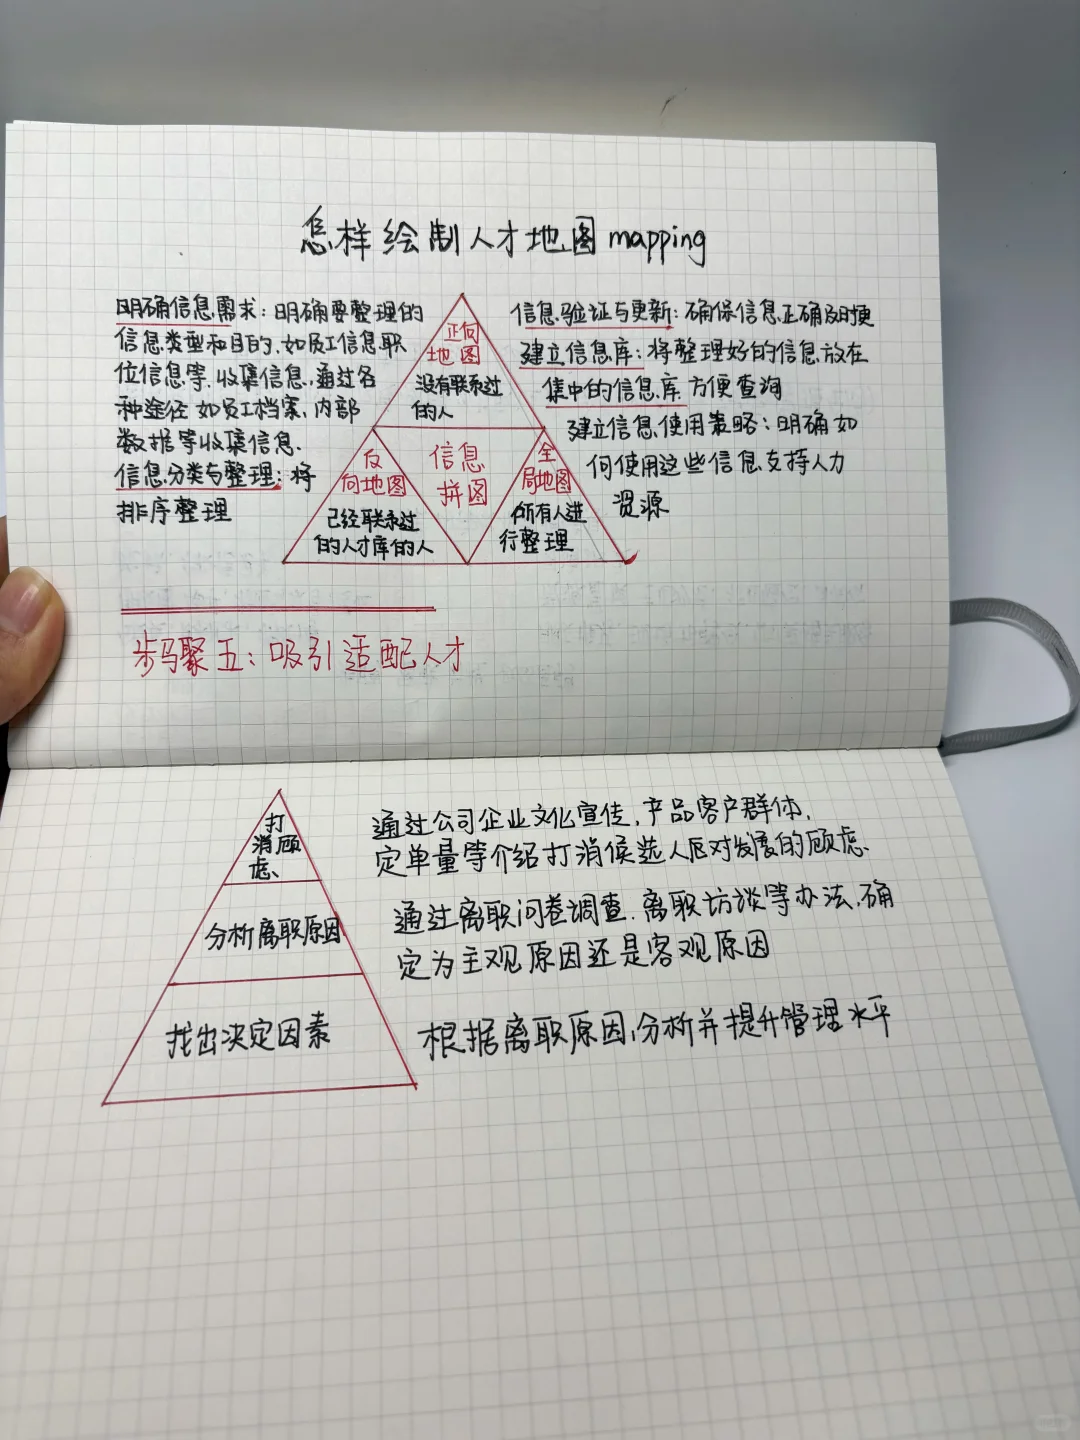 怎样绘制人才地图mapping
明确信息需求：明确要整理的
信息类型和目的，如员工信息职
位信息等，收集信息，通过各
种途径 如员工档案、内部
数据等收集信息.
信息分类与整理：将
排序整理
正向
地图
没有联系过
的人
反
向地图
已经联系过
的人才库的人
信息
拼图
全
局地图
所有人进
行整理
信息验证与更新：确保信息正确及时更
建立信息库：将整理好的信息放在
集中的信息库 方便查询
建立信息使用策略：明确如
何使用这些信息支持人力
资源
步骤五：吸引适配人才
打
消顾
虑、
通过公司企业文化宣传，产品客户群体，
定单量等介绍打消候选人应对发展的顾虑.
分析离职原因
通过离职问卷调查，离职访谈等办法，确
定为主观原因还是客观原因
找出决定因素
根据离职原因，分析并提升管理水平